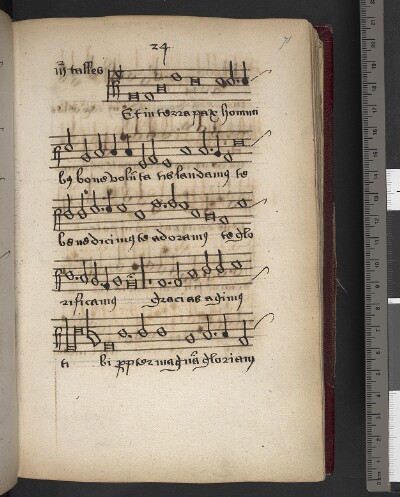 24
71
mr talles
Et in terra pax homini
bus bone volūta tis laudamus te
be ne dici mus te adoramus te glo
rificamus gracias agimus
ti bi propter magnā gloriam